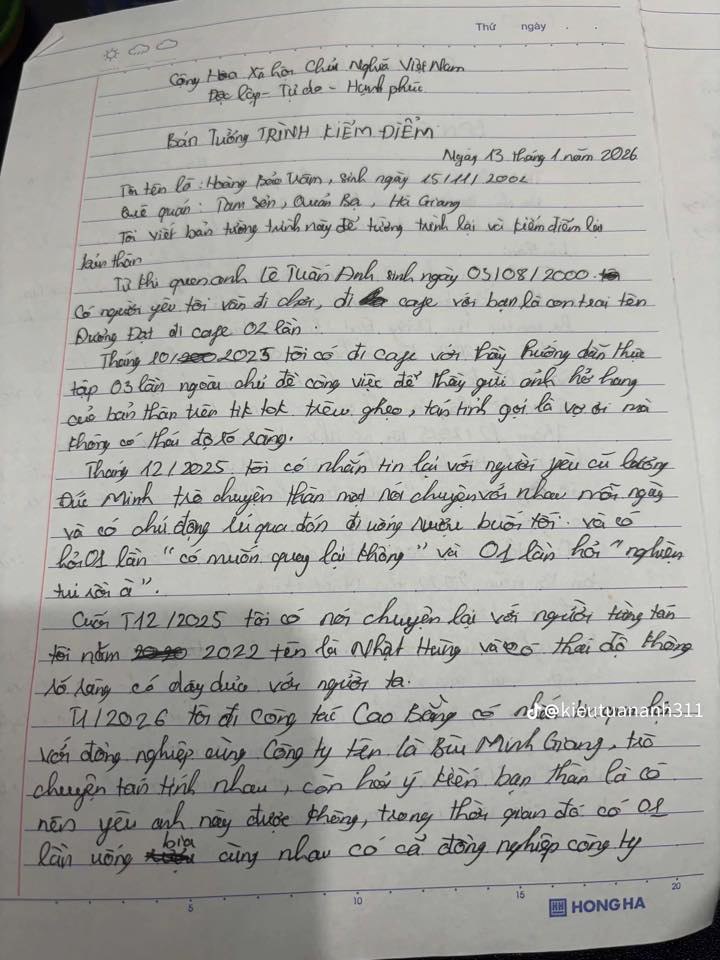 Thứ ngày
Cộng Hòa Xã hội Chủ Nghĩa Việt Nam
Độc lập - Tự do - Hạnh phúc
BẢN TƯỜNG TRÌNH KIỂM ĐIỂM
Ngày 13 tháng 1 năm 2026
Tôi tên là: Hoàng Bảo Trâm, sinh ngày 15/11/2002
Quê quán: Tam Sơn, Quản Bạ, Hà Giang
Tôi viết bản tường trình này để tường trình lại và kiểm điểm lại
bản thân
Từ khi quen anh Lê Tuấn Anh sinh ngày 03/08/2000.
Có người yêu tôi vẫn đi chơi, đi cafe với bạn là con trai tên
Dương Đạt đi cafe 02 lần.
Tháng 10/2025 tôi có đi cafe với thầy hướng dẫn thực
tập 03 lần ngoài chủ đề công việc để thầy gửi ảnh hở hang
của bản thân trên tik tok trêu ghẹo, tán tỉnh gọi là vợ ơi mà
không có thái độ rõ ràng.
Tháng 12/2025 tôi có nhắn tin lại với người yêu cũ Lương
Đức Minh trò chuyện thân mật nói chuyện với nhau mỗi ngày
và có chủ động rủ qua đón đi uống rượu buổi tối. và có
hỏi 01 lần "có muốn quay lại không" và 01 lần hỏi "nghiện
tui rồi à".
Cuối T12/2025 tôi có nói chuyện lại với người từng tán
tôi năm 2022 tên là Nhật Hùng và có thái độ không
rõ ràng có dây dưa với người ta.
T1/2026 tôi đi công tác Cao Bằng có nhắn qua lại
với đồng nghiệp cùng công ty tên là Bùi Minh Giang, trò
chuyện tán tỉnh nhau, còn hỏi ý kiến bạn thân là có
nên yêu anh này được không, trong thời gian đó có 01
lần uống bia cùng nhau có cả đồng nghiệp công ty
@kieutuananh311
5 10 15 20
HONG HA